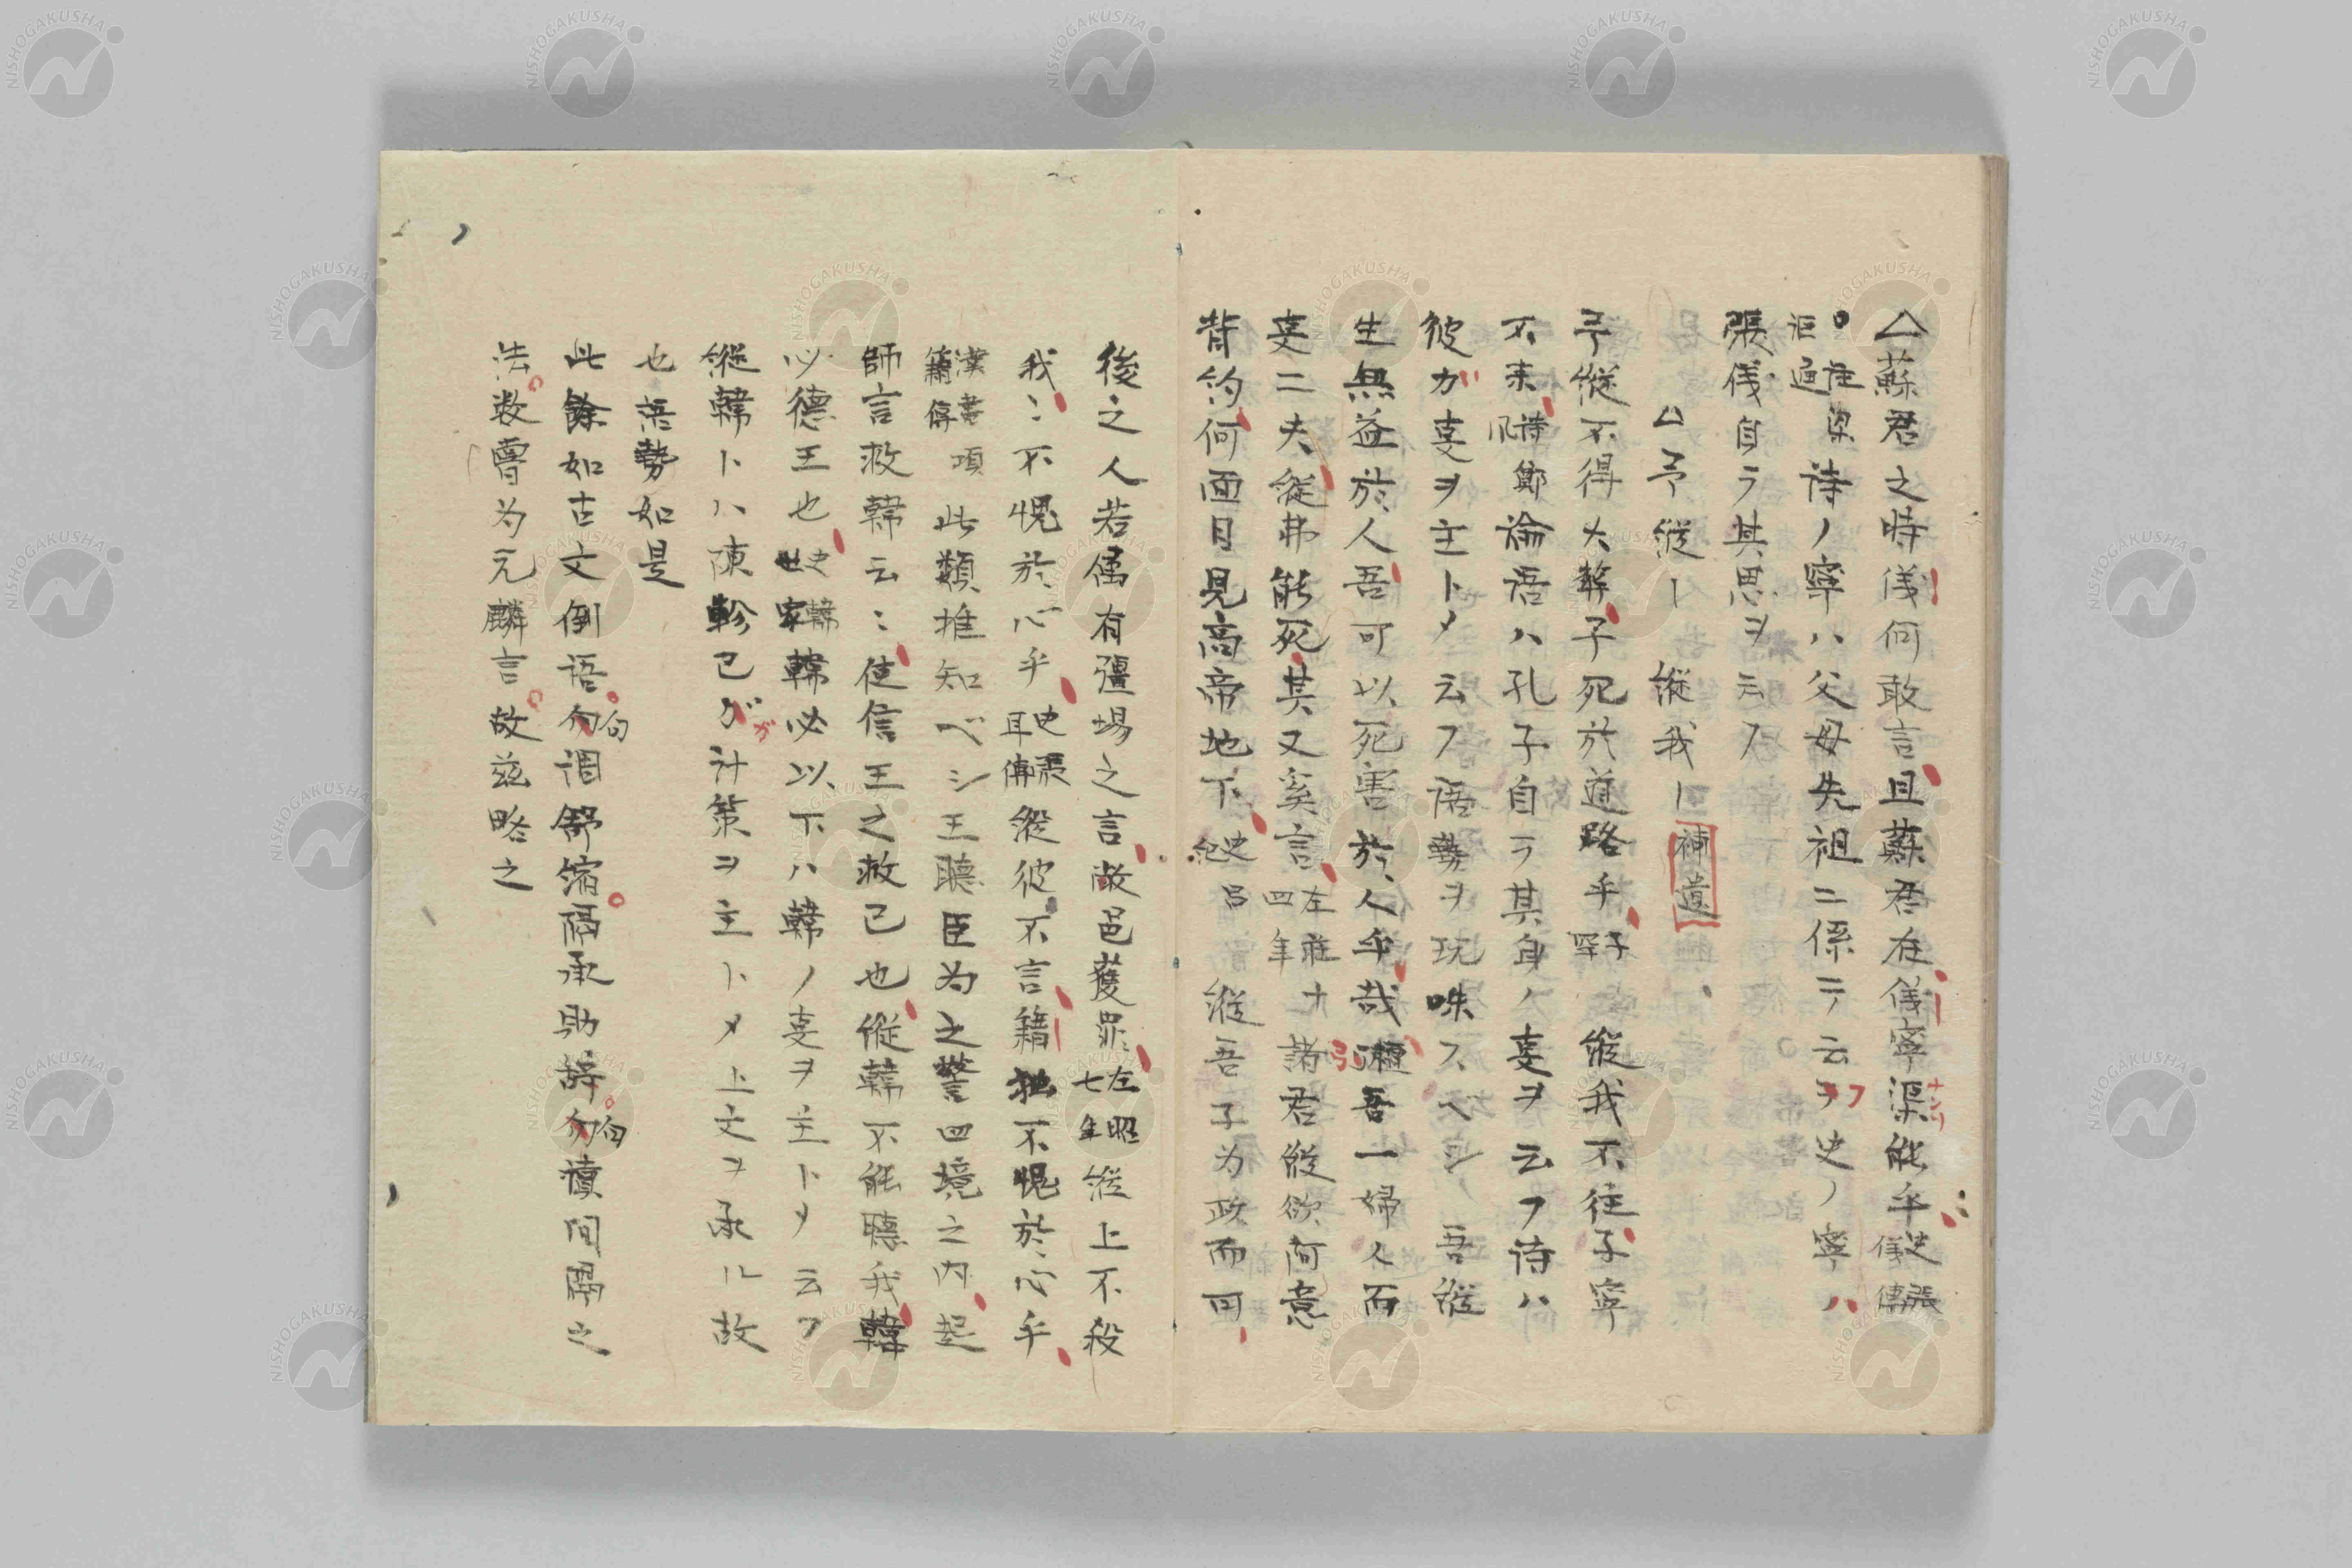 △蘇君之時儀何敢言且蘇君在儀寧渠能乎史張儀傳
●注疏 梁 詩ノ寧ハ父母先祖ニ係テ云フ史ノ寧ハ
張儀自ラ其思ヲ云フ
△予縱― 縱我― 補遺
予縱不得大葬子死於道路乎子罕 縱我不往子寧
不来詩鄭風 論語ハ孔子自ラ其身ノ叓ヲ云フ詩ハ
彼ガ叓ヲ主トメ云フ語勢ヲ玩味スベシ 吾縱
生無益於人吾可以死害於人乎哉檀弓 吾一婦人而
叓二夫縱弗能死其又奚言左莊十四年 諸君縱欲何意
背約何面目見高帝地下史呂紀 縱吾子為政而可
後之人若属有疆場之言敝邑獲罪左昭七年 縱上不殺
我〻不愧於心乎史田横傳 縱彼不言籍独不愧於心乎
漢書項籍傳 此類推知ベシ王聽臣為之警四境之内起
師言救韓云〻使信王之救己也縱韓不能聽我韓
必德王也史韓世家 韓必以下ハ韓ノ叓ヲ主トメ云フ
縱韓トハ陳軫己ガ計策ヲ主トメ上文ヲ承ル故
也 語勢如是
此餘如古文倒語句調舒縮隔承助辞句讀間隔之
法数嘗为元麟言故茲略之
NISHOGAKUSHA